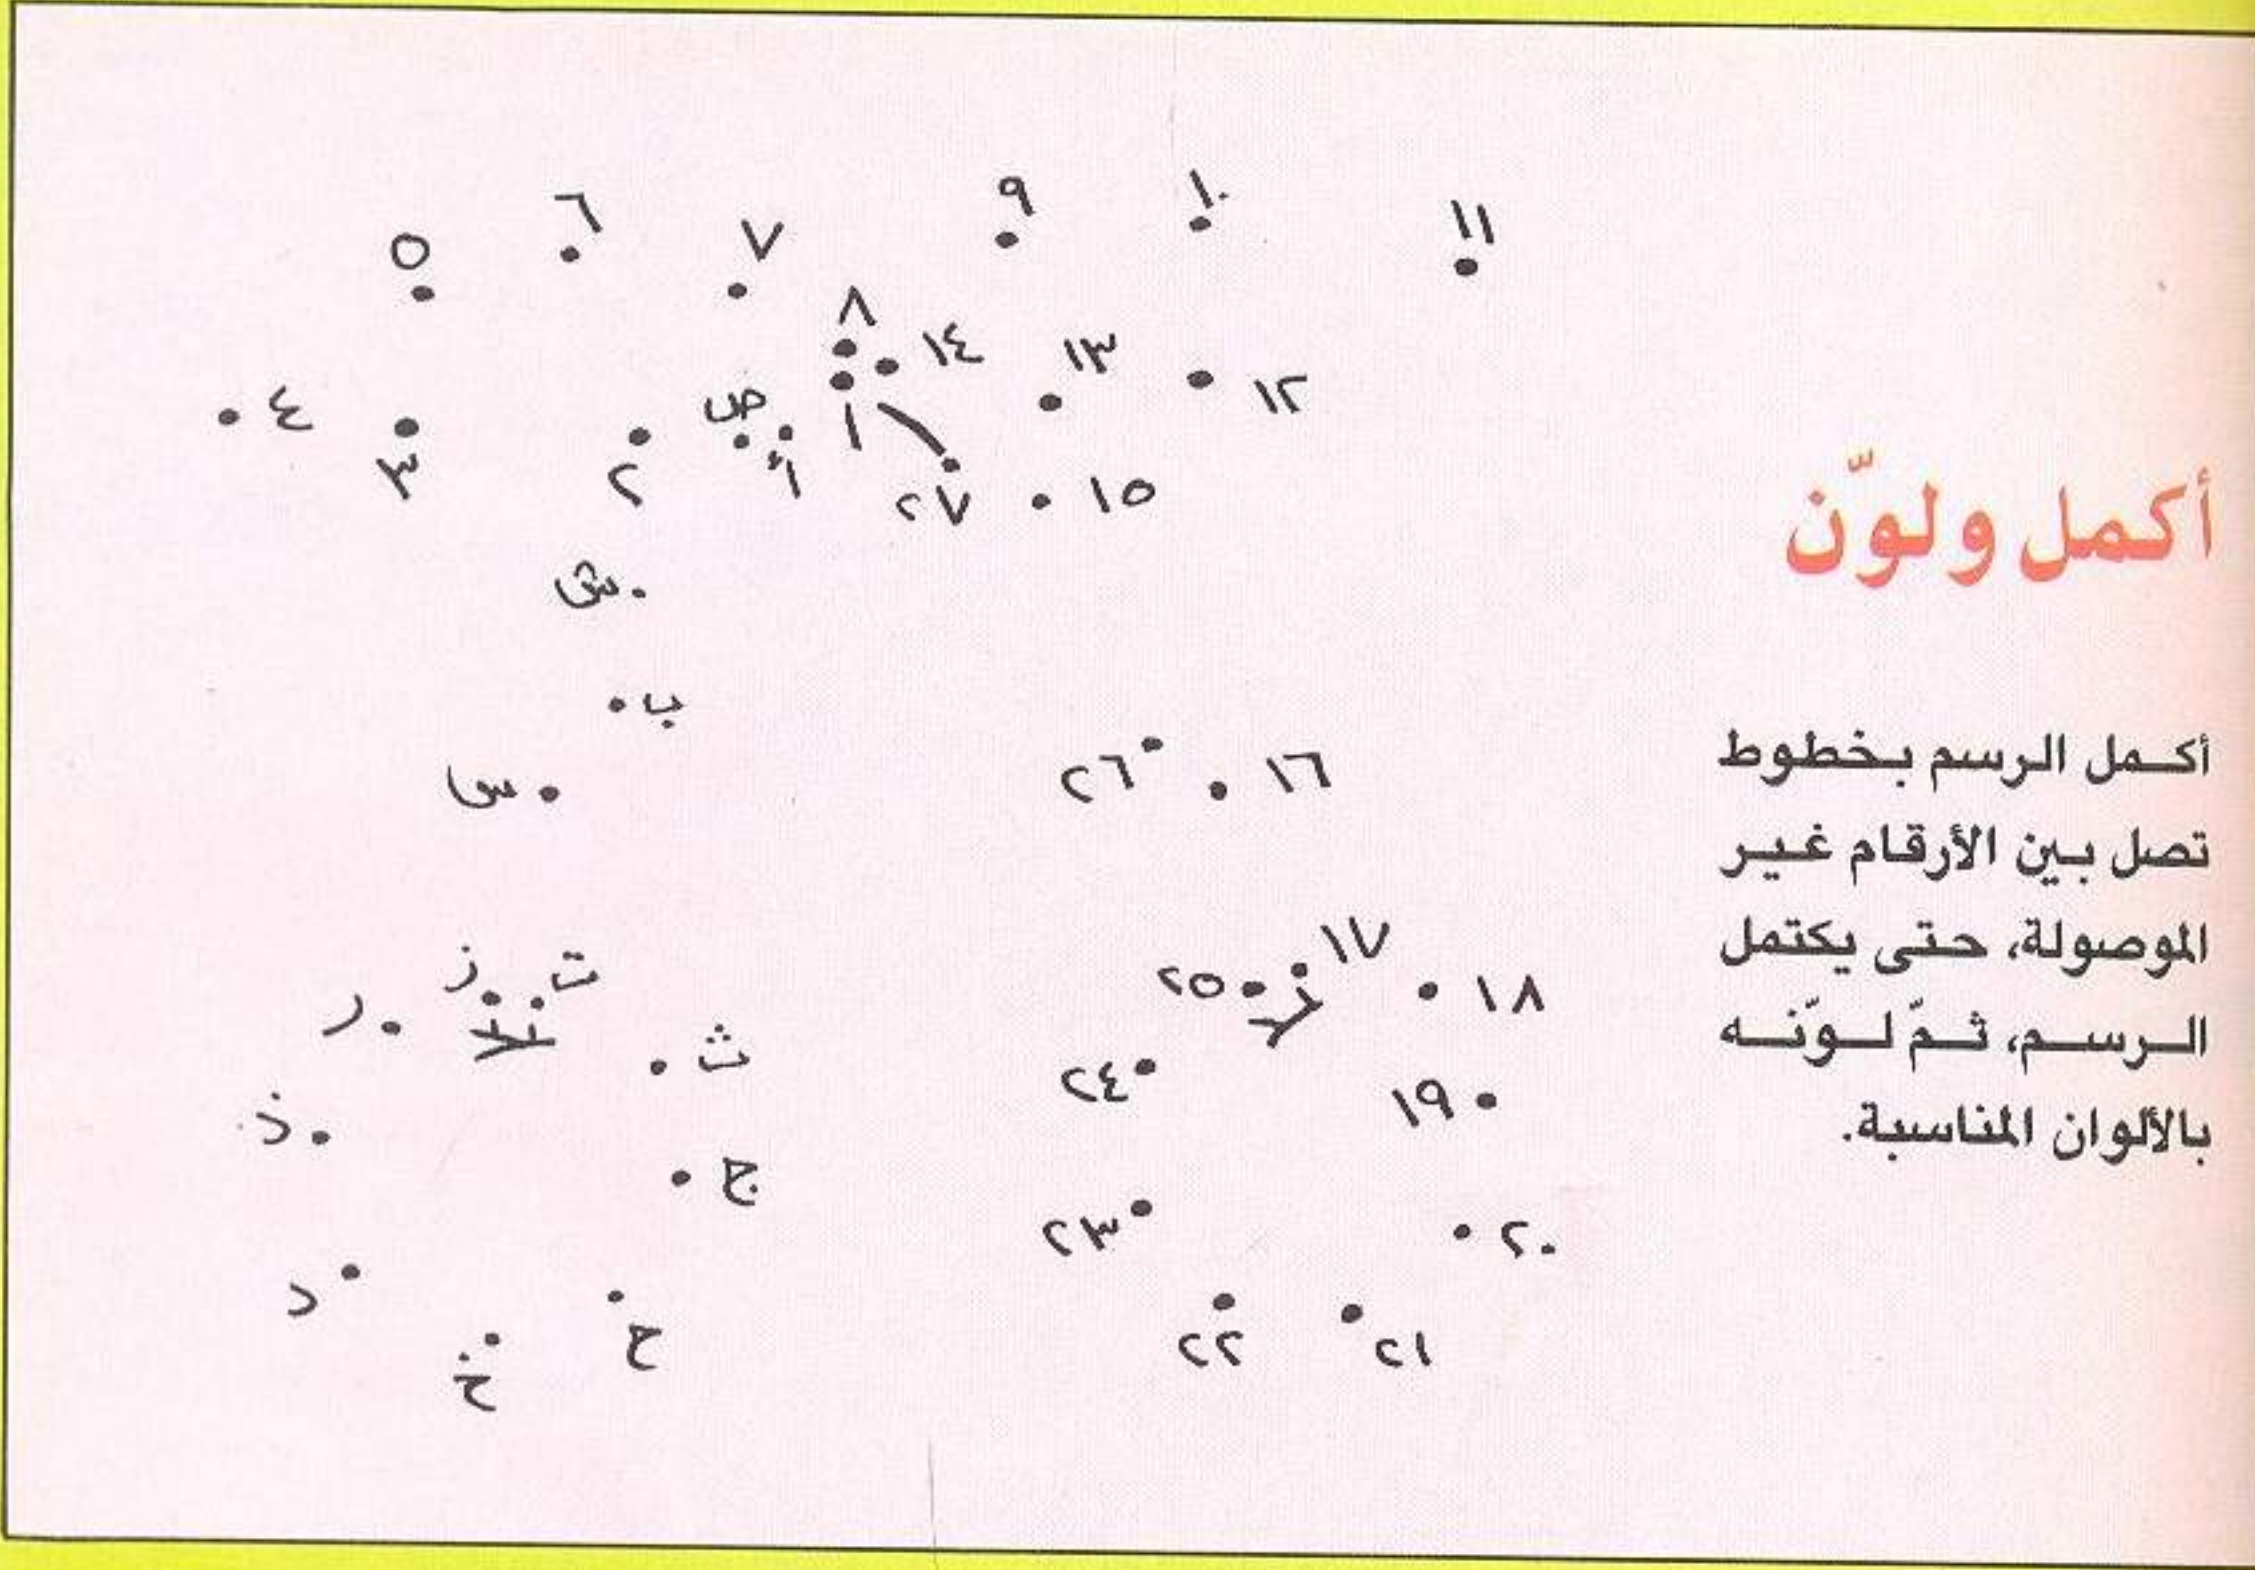 أكمل ولوّن
أكمل الرسم بخطوط
تصل بين الأرقام غير
الموصولة، حتى يكتمل
الرسم، ثمّ لوّنه
بالألوان المناسبة.
٥ ٦ ٧ ٩ ١٠ ١١
٨ ١٤ ١٣ ١٢
٤ ٣ ٢ ص أ ١ ٢٧ ١٥
ش
ب
س ٢٦ ١٦
ر ز ت ٢٥ ١٧ ١٨
ذ ث ٢٤ ١٩
ج ٢٣ ٢٠
د خ ح ٢٢ ٢١